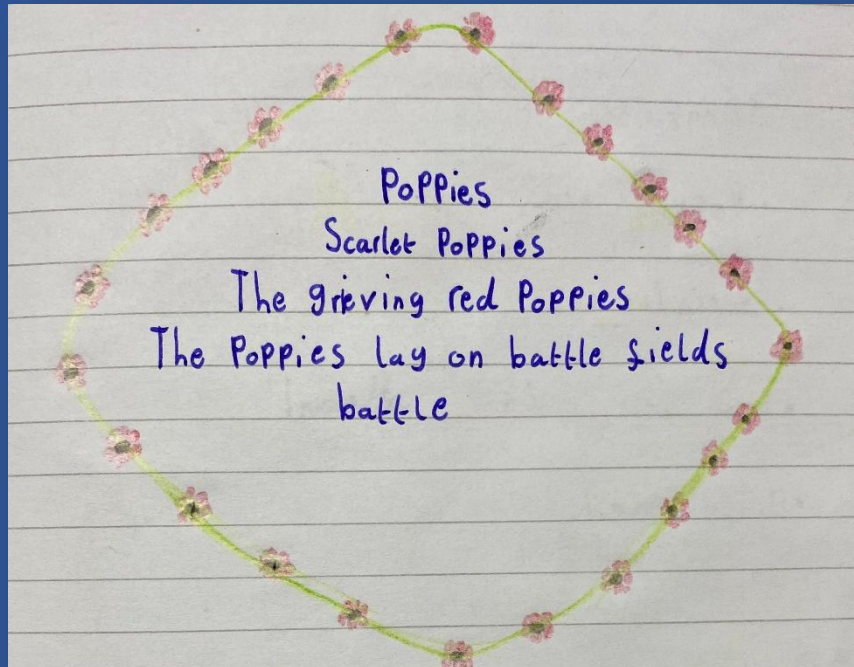 Poppies
Scarlet Poppies
The grieving red Poppies
The Poppies lay on battle fields
battle